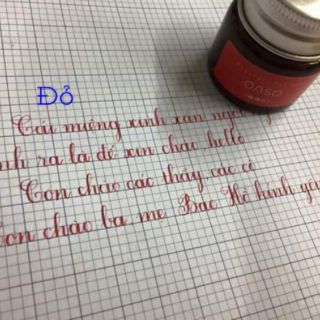 Đỏ
Cái miệng xinh xắn
nh ra là để xin chào hello
Con chào các thầy các cô
Con chào ba, mẹ Bác Hồ kính